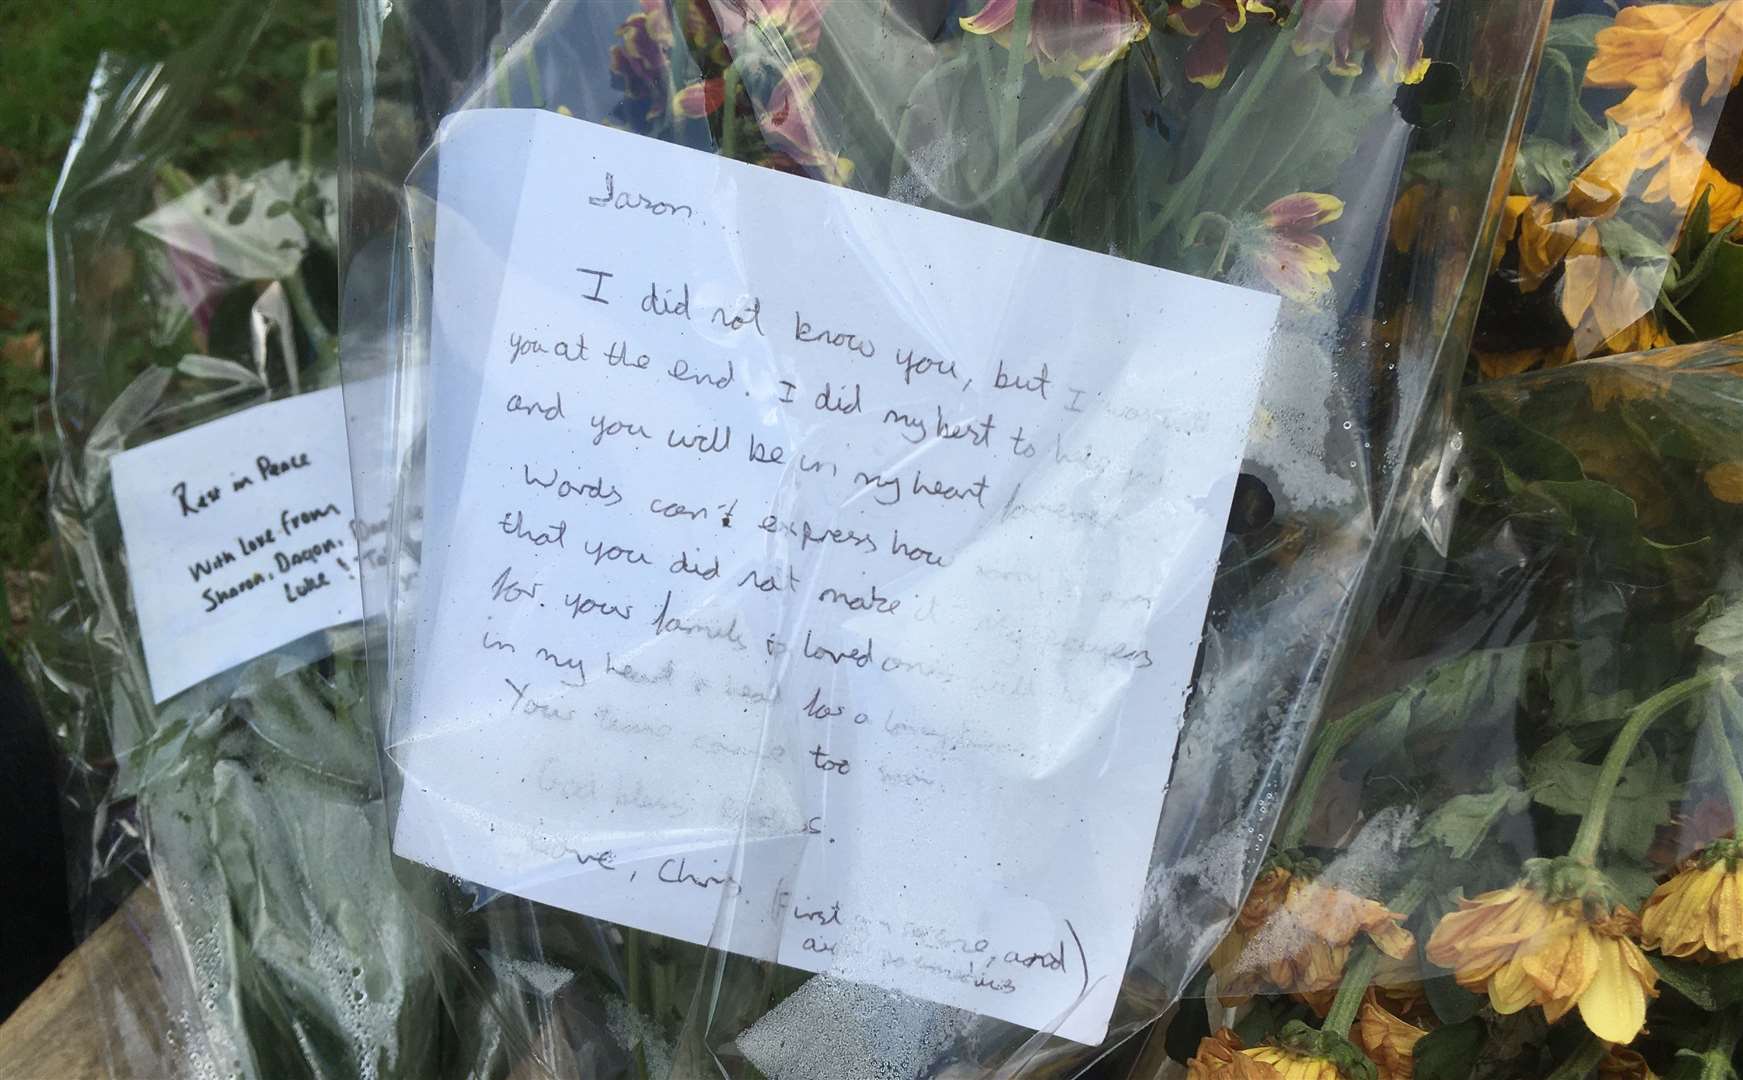 Jason.
I did not know you, but I
you at the end. I did my best to
and you will be in my heart
Words can't express how sorry I am
that you did not make it
for your family & loved ones will be
in my heart & head for a long time
Your time came too soon
God bless
Love, Chris. (First on scene, and)
Rest in Peace
With love from
Sharon,
Luke